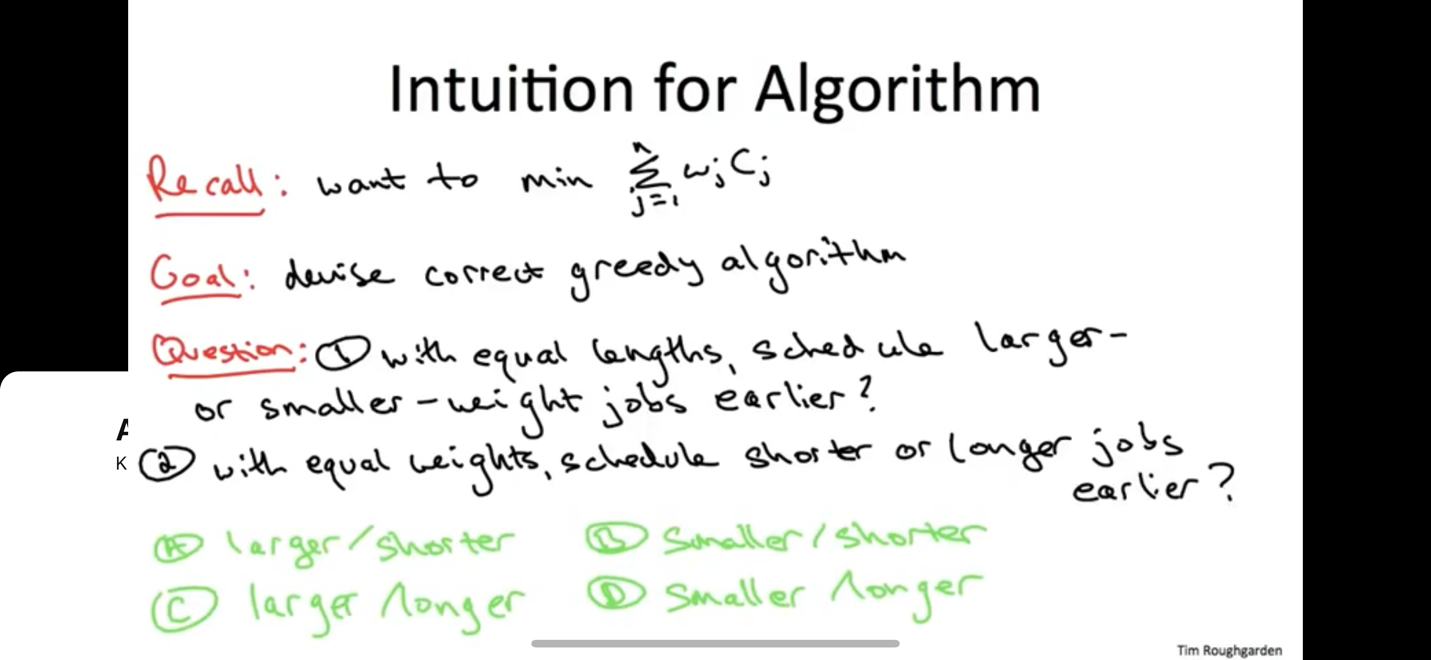 Intuition for Algorithm
Recall: want to min ∑ⁿⱼ₌₁ wⱼCⱼ
Goal: devise correct greedy algorithm
Question: ① with equal lengths, schedule larger-
or smaller-weight jobs earlier?
② with equal weights, schedule shorter or longer jobs
earlier?
Ⓐ larger/shorter Ⓑ smaller/shorter
Ⓒ larger/longer Ⓓ smaller/longer
K
Tim Roughgarden